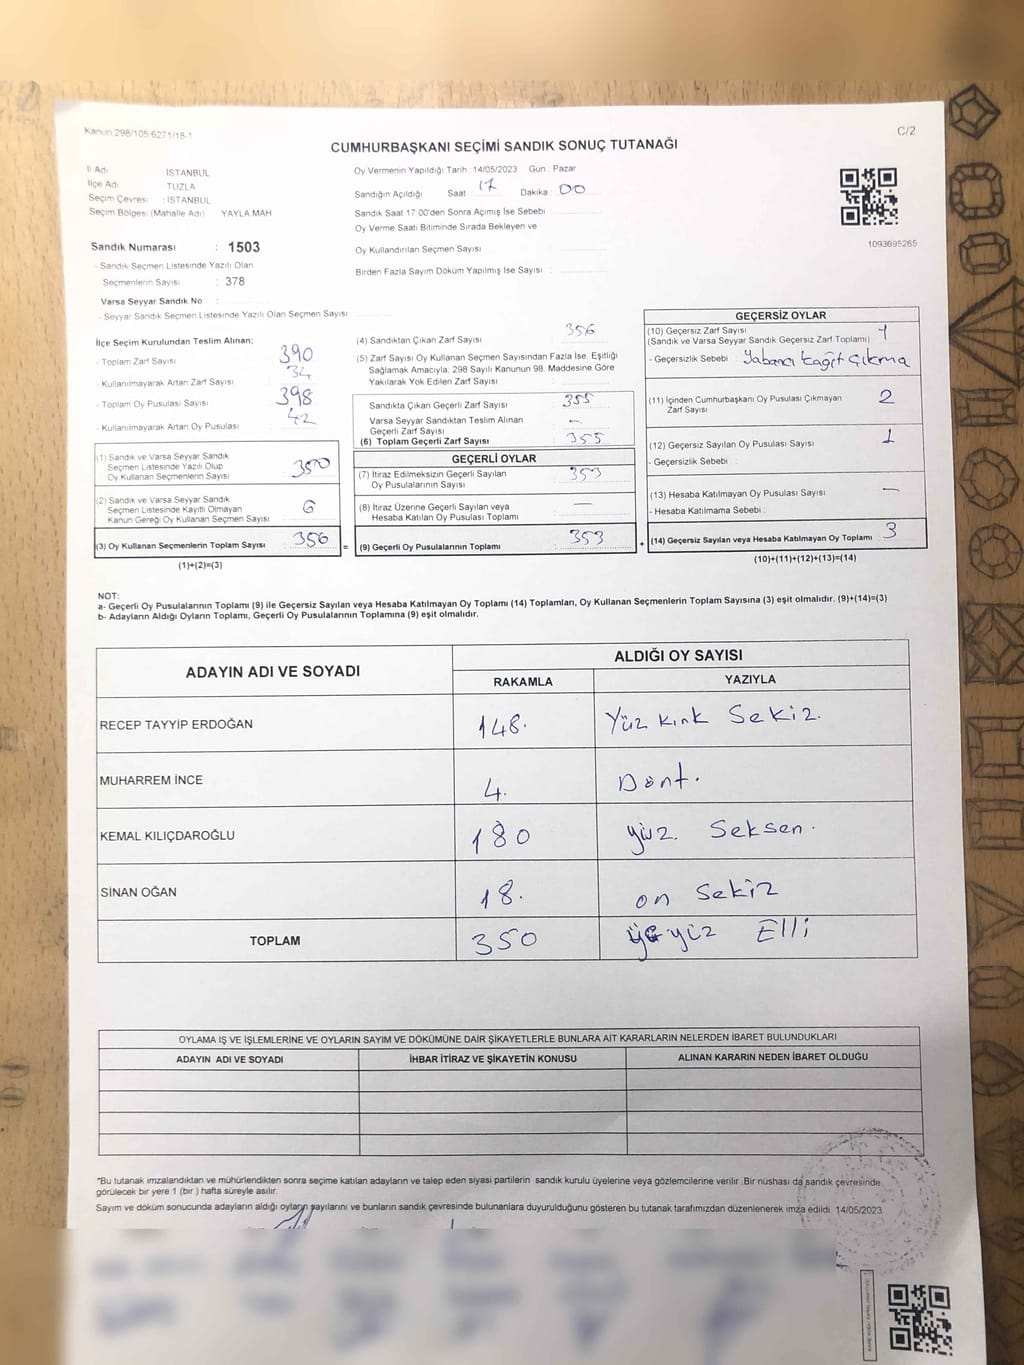 Kanun:298/105;6271/18-1
C/2
CUMHURBAŞKANI SEÇİMİ SANDIK SONUÇ TUTANAĞI
İl Adı İSTANBUL
İlçe Adı TUZLA
Seçim Çevresi : İSTANBUL
Seçim Bölgesi (Mahalle Adı) YAYLA MAH
Sandık Numarası : 1503
- Sandık Seçmen Listesinde Yazılı Olan
Seçmenlerin Sayısı : 378
Varsa Seyyar Sandık No :
- Seyyar Sandık Seçmen Listesinde Yazılı Olan Seçmen Sayısı :
Oy Vermenin Yapıldığı Tarih : 14/05/2023 Gün : Pazar
Sandığın Açıldığı Saat 17 Dakika 00
Sandık Saat 17:00'den Sonra Açımış İse Sebebi
Oy Verme Saati Bitiminde Sırada Bekleyen ve
Oy Kullandırılan Seçmen Sayısı
Birden Fazla Sayım Döküm Yapılmış İse Sayısı :
1093695265
İlçe Seçim Kurulundan Teslim Alınan;
- Toplam Zarf Sayısı 390
- Kullanılmayarak Artan Zarf Sayısı 34
- Toplam Oy Pusulası Sayısı 398
- Kullanılmayarak Artan Oy Pusulası 42
(1) Sandık ve Varsa Seyyar Sandık
Seçmen Listesinde Yazılı Olup
Oy Kullanan Seçmenlerin Sayısı 350
(2) Sandık ve Varsa Seyyar Sandık
Seçmen Listesinde Kayıtlı Olmayan
Kanun Gereği Oy Kullanan Seçmen Sayısı 6
(3) Oy Kullanan Seçmenlerin Toplam Sayısı 356 =
(1)+(2)=(3)
(4) Sandıktan Çıkan Zarf Sayısı 356
(5) Zarf Sayısı Oy Kullanan Seçmen Sayısından Fazla İse, Eşitliği
Sağlamak Amacıyla; 298 Sayılı Kanunun 98. Maddesine Göre
Yakılarak Yok Edilen Zarf Sayısı
Sandıkta Çıkan Geçerli Zarf Sayısı 355
Varsa Seyyar Sandıktan Teslim Alınan
Geçerli Zarf Sayısı -
(6) Toplam Geçerli Zarf Sayısı 355
GEÇERLİ OYLAR
(7) İtiraz Edilmeksizin Geçerli Sayılan
Oy Pusulalarının Sayısı 353
(8) İtiraz Üzerine Geçerli Sayılan veya
Hesaba Katılan Oy Pusulası Toplamı —
(9) Geçerli Oy Pusulalarının Toplamı 353 +
GEÇERSİZ OYLAR
(10) Geçersiz Zarf Sayısı 1
(Sandık ve Varsa Seyyar Sandık Geçersiz Zarf Toplamı)
- Geçersizlik Sebebi : Yabancı Kağıt Çıkma
(11) İçinden Cumhurbaşkanı Oy Pusulası Çıkmayan
Zarf Sayısı 2
(12) Geçersiz Sayılan Oy Pusulası Sayısı 1
- Geçersizlik Sebebi :
(13) Hesaba Katılmayan Oy Pusulası Sayısı -
- Hesaba Katılmama Sebebi :
(14) Geçersiz Sayılan veya Hesaba Katılmayan Oy Toplamı 3
(10)+(11)+(12)+(13)=(14)
NOT:
a- Geçerli Oy Pusulalarının Toplamı (9) ile Geçersiz Sayılan veya Hesaba Katılmayan Oy Toplamı (14) Toplamları, Oy Kullanan Seçmenlerin Toplam Sayısına (3) eşit olmalıdır. (9)+(14)=(3)
b- Adayların Aldığı Oyların Toplamı, Geçerli Oy Pusulalarının Toplamına (9) eşit olmalıdır.
ADAYIN ADI VE SOYADI ALDIĞI OY SAYISI
RAKAMLA YAZIYLA
RECEP TAYYİP ERDOĞAN 148. Yüz kırk Sekiz.
MUHARREM İNCE 4. Dört.
KEMAL KILIÇDAROĞLU 180 yüz. Seksen.
SİNAN OĞAN 18. on Sekiz
TOPLAM 350 üçyüz Elli
OYLAMA İŞ VE İŞLEMLERİNE VE OYLARIN SAYIM VE DÖKÜMÜNE DAİR ŞİKAYETLERLE BUNLARA AİT KARARLARIN NELERDEN İBARET BULUNDUKLARI
ADAYIN ADI VE SOYADI İHBAR İTİRAZ VE ŞİKAYETİN KONUSU ALINAN KARARIN NEDEN İBARET OLDUĞU
*Bu tutanak imzalandıktan ve mühürlendikten sonra seçime katılan adayların ve talep eden siyasi partilerin sandık kurulu üyelerine veya gözlemcilerine verilir .Bir nüshası da sandık çevresinde,
görülecek bir yere 1 (bir ) hafta süreyle asılır.
Sayım ve döküm sonucunda adayların aldığı oyların sayılarını ve bunların sandık çevresinde bulunanlara duyurulduğunu gösteren bu tutanak tarafımızdan düzenlenerek imza edildi. 14/05/2023